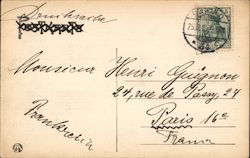 Drucksache
Monsieur Henri Guignon
24, rue de Pasny, 24
Paris 16e
Frankreich
France